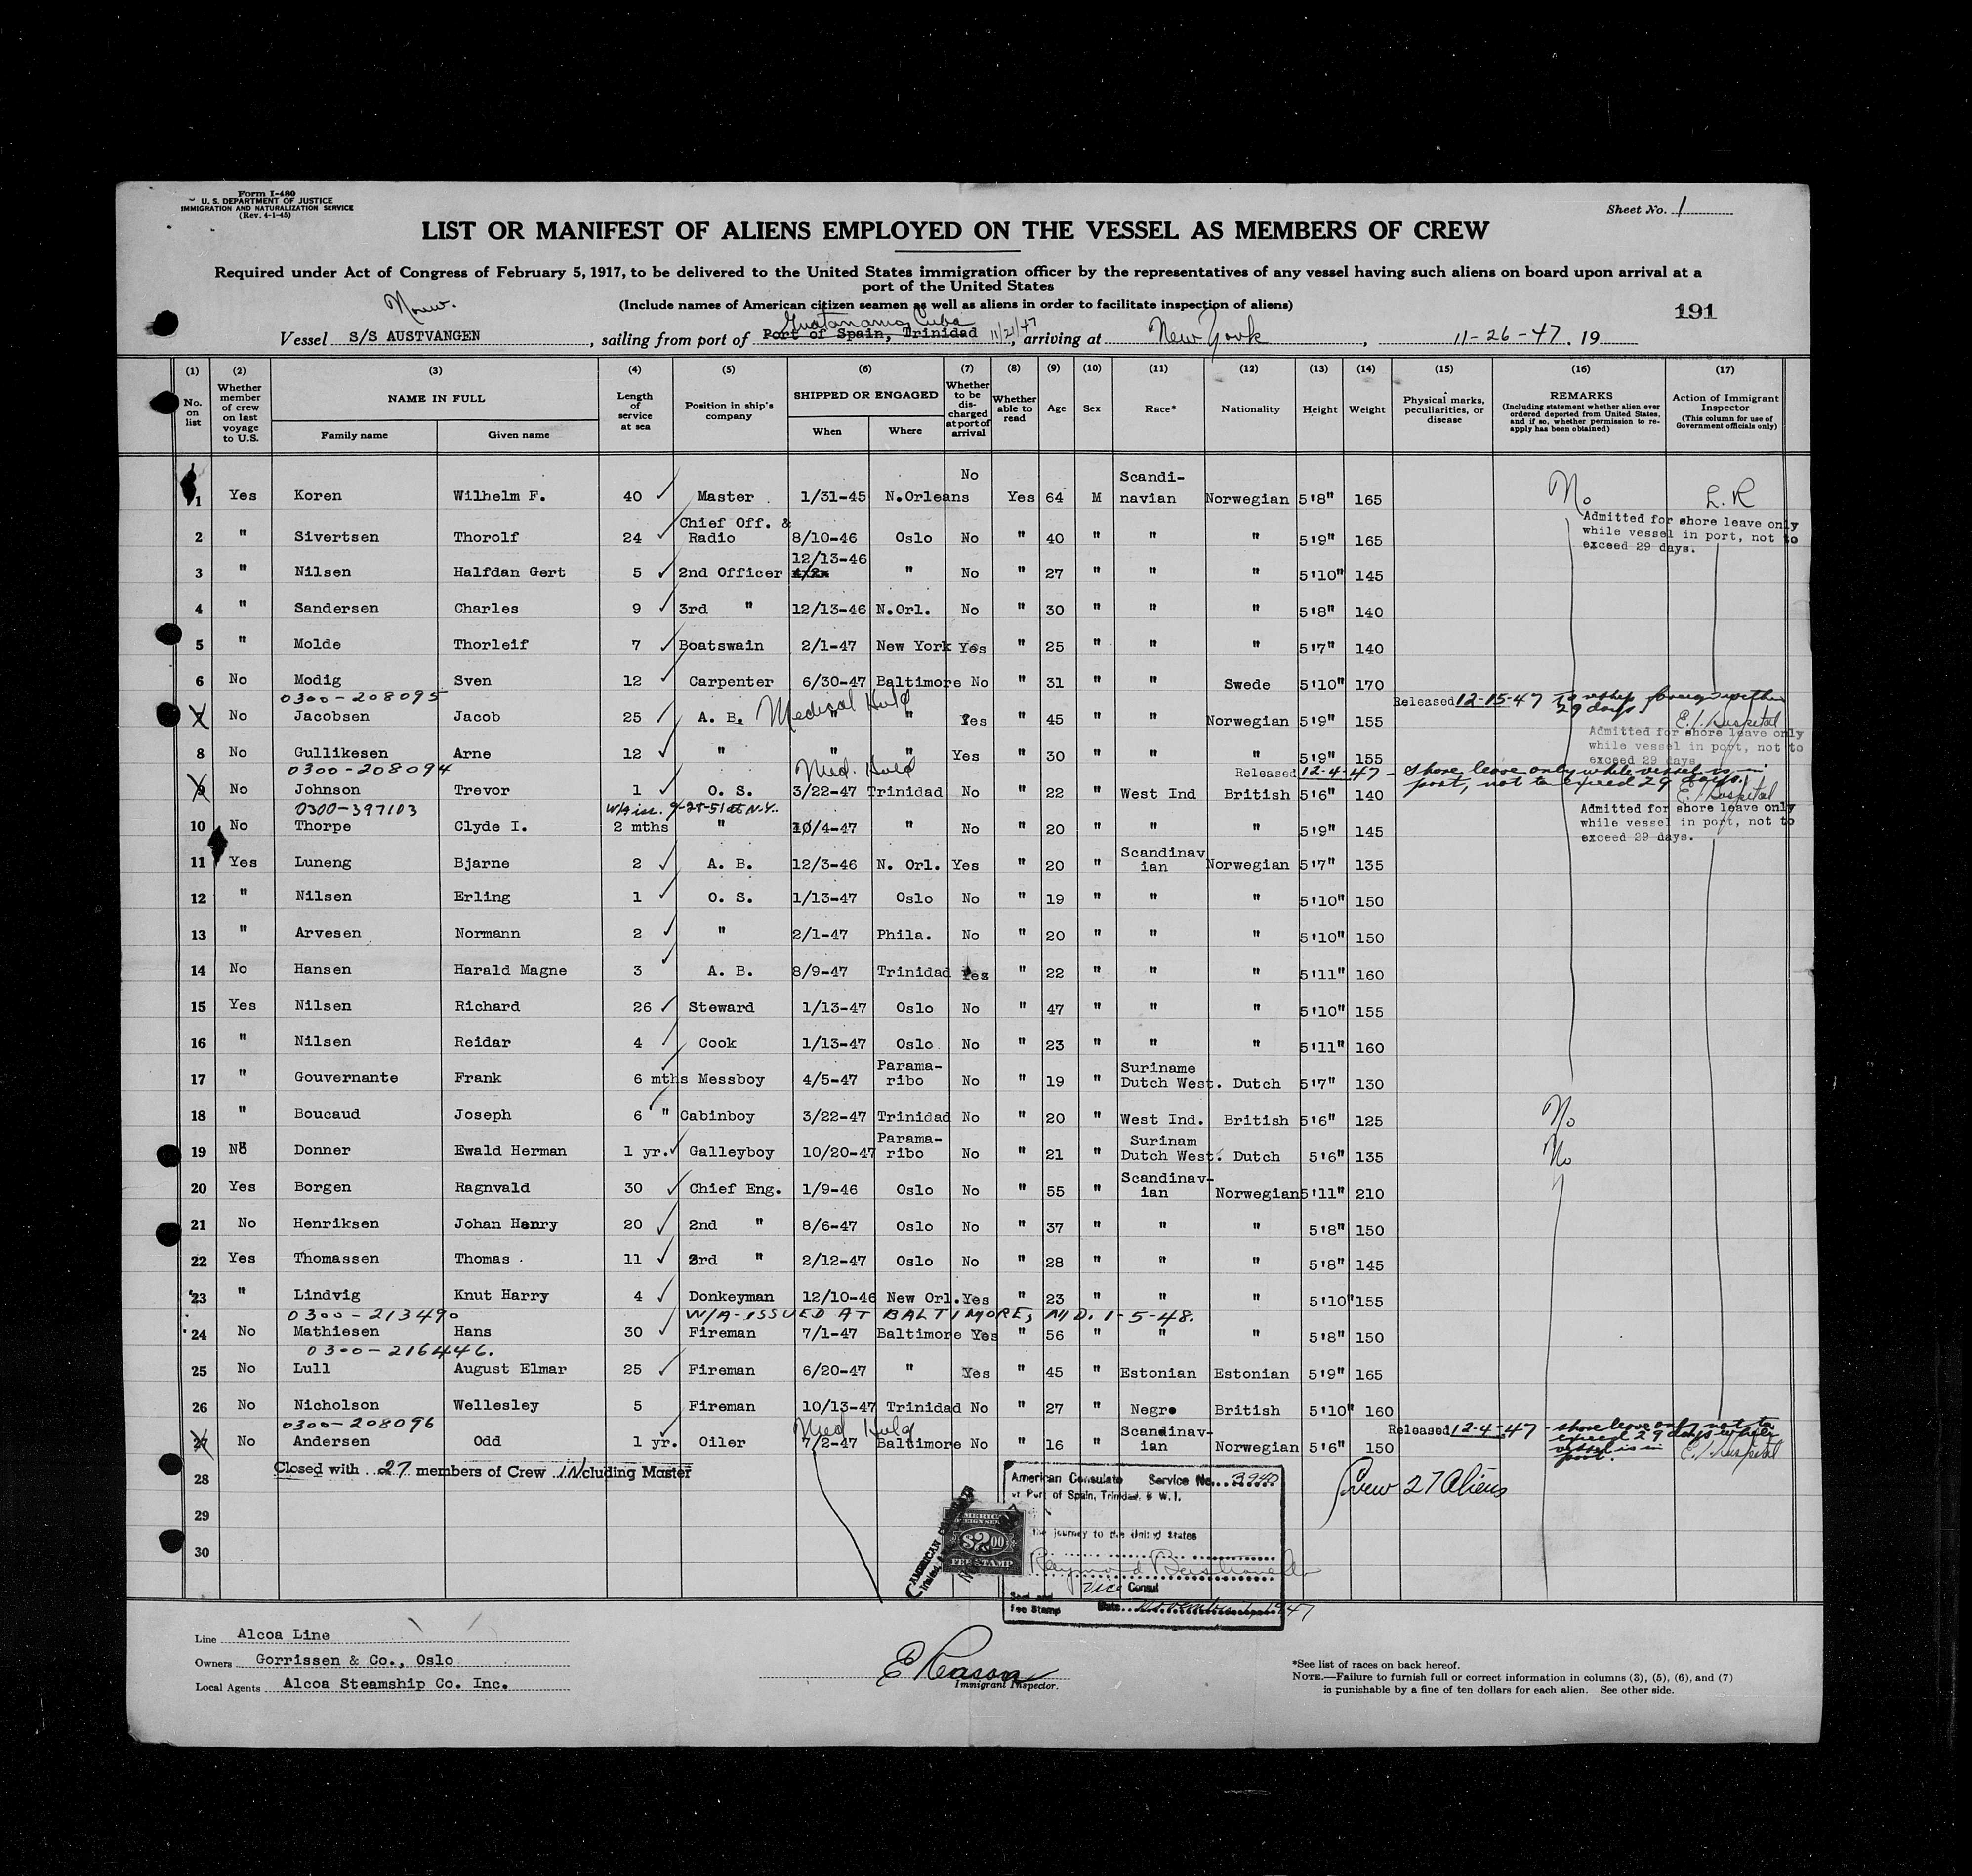 Form I-480
U. S. DEPARTMENT OF JUSTICE
IMMIGRATION AND NATURALIZATION SERVICE
(Rev. 4-1-45)
Sheet No. 1
LIST OR MANIFEST OF ALIENS EMPLOYED ON THE VESSEL AS MEMBERS OF CREW
Required under Act of Congress of February 5, 1917, to be delivered to the United States immigration officer by the representatives of any vessel having such aliens on board upon arrival at a
port of the United States
(Include names of American citizen seamen as well as aliens in order to facilitate inspection of aliens)
191
Norw.
Guatanamo, Cuba
Vessel S/S AUSTVANGEN , sailing from port of Port of Spain, Trinidad 11/21/47, arriving at New York , 11-26-47 . 19
(1) No. on list
(2) Whether member of crew on last voyage to U.S.
(3) NAME IN FULL Family name Given name
(4) Length of service at sea
(5) Position in ship's company
(6) SHIPPED OR ENGAGED When Where
(7) Whether to be discharged at port of arrival
(8) Whether able to read
(9) Age
(10) Sex
(11) Race*
(12) Nationality
(13) Height
(14) Weight
(15) Physical marks, peculiarities, or disease
(16) REMARKS (Including statement whether alien ever ordered deported from United States, and if so, whether permission to reapply has been obtained)
(17) Action of Immigrant Inspector (This column for use of Government officials only)
1 Yes Koren Wilhelm F. 40 Master 1/31-45 N.Orleans No Yes 64 M Scandi-navian Norwegian 5'8" 165 No L.R
Admitted for shore leave only
while vessel in port, not to
exceed 29 days.
2 " Sivertsen Thorolf 24 Chief Off. & Radio 8/10-46 Oslo No " 40 " " " 5'9" 165
3 " Nilsen Halfdan Gert 5 2nd Officer 12/13-46 " No " 27 " " " 5'10" 145
4 " Sandersen Charles 9 3rd " 12/13-46 N.Orl. No " 30 " " " 5'8" 140
5 " Molde Thorleif 7 Boatswain 2/1-47 New York Yes " 25 " " " 5'7" 140
6 No Modig Sven 12 Carpenter 6/30-47 Baltimore No " 31 " " Swede 5'10" 170
0300-208095 Medical Hold Released 12-15-47 To reship foreign within 29 days
7 No Jacobsen Jacob 25 A. B. " " Yes " 45 " " Norwegian 5'9" 155 E.I. Hospital
Admitted for shore leave only
while vessel in port, not to
exceed 29 days
8 No Gullikesen Arne 12 " " " Yes " 30 " " " 5'9" 155
0300-208094 Med. Hold Released 12-4-47 - shore leave only while vessel is in port, not to exceed 29 days.
9 No Johnson Trevor 1 O. S. 3/22-47 Trinidad No " 22 " West Ind British 5'6" 140 E.I. Hospital
0300-397103 W/A iss. 9-25-51 at N.Y.
Admitted for shore leave only
while vessel in port, not to
exceed 29 days.
10 No Thorpe Clyde I. 2 mths " 10/4-47 " No " 20 " " " 5'9" 145
11 Yes Luneng Bjarne 2 A. B. 12/3-46 N. Orl. Yes " 20 " Scandinav ian Norwegian 5'7" 135
12 " Nilsen Erling 1 O. S. 1/13-47 Oslo No " 19 " " " 5'10" 150
13 " Arvesen Normann 2 " 2/1-47 Phila. No " 20 " " " 5'10" 150
14 No Hansen Harald Magne 3 A. B. 8/9-47 Trinidad Yes " 22 " " " 5'11" 160
15 Yes Nilsen Richard 26 Steward 1/13-47 Oslo No " 47 " " " 5'10" 155
16 " Nilsen Reidar 4 Cook 1/13-47 Oslo No " 23 " " " 5'11" 160
17 " Gouvernante Frank 6 mths Messboy 4/5-47 Parama-ribo No " 19 " Suriname Dutch West. Dutch 5'7" 130
18 " Boucaud Joseph 6 " Cabinboy 3/22-47 Trinidad No " 20 " West Ind. British 5'6" 125 No
19 No Donner Ewald Herman 1 yr. Galleyboy 10/20-47 Parama-ribo No " 21 " Surinam Dutch West. Dutch 5'6" 135 No
20 Yes Borgen Ragnvald 30 Chief Eng. 1/9-46 Oslo No " 55 " Scandinav-ian Norwegian 5'11" 210
21 No Henriksen Johan Henry 20 2nd " 8/6-47 Oslo No " 37 " " " 5'8" 150
22 Yes Thomassen Thomas 11 3rd " 2/12-47 Oslo No " 28 " " " 5'8" 145
23 " Lindvig Knut Harry 4 Donkeyman 12/10-46 New Orl. Yes " 23 " " " 5'10" 155
0300-213490 W/A-ISSUED AT BALTIMORE, MD. 1-5-48.
24 No Mathiesen Hans 30 Fireman 7/1-47 Baltimore Yes " 56 " " " 5'8" 150
0300-216446.
25 No Lull August Elmar 25 Fireman 6/20-47 " Yes " 45 " Estonian Estonian 5'9" 165
26 No Nicholson Wellesley 5 Fireman 10/13-47 Trinidad No " 27 " Negro British 5'10" 160
0300-208096 Med Hold Released 12-4-47 - shore leave only not to exceed 29 days while vessel is in port.
27 No Andersen Odd 1 yr. Oiler 7/2-47 Baltimore No " 16 " Scandinav-ian Norwegian 5'6" 150 E.I. Hospital
28 Closed with 27 members of Crew INcluding Master
Crew 27 Aliens
29
30
American Consulate Service No. 3940
at Port of Spain, Trinidad, B W.I.
the journey to the United States
Vice Consul
Seal and
Fee Stamp Date November 1947
AMERICAN
FOREIGN SERVICE
$2.00
FEE STAMP
Line Alcoa Line
Owners Gorrissen & Co., Oslo
Local Agents Alcoa Steamship Co. Inc.
Immigrant Inspector.
*See list of races on back hereof.
NOTE.—Failure to furnish full or correct information in columns (3), (5), (6), and (7)
is punishable by a fine of ten dollars for each alien. See other side.